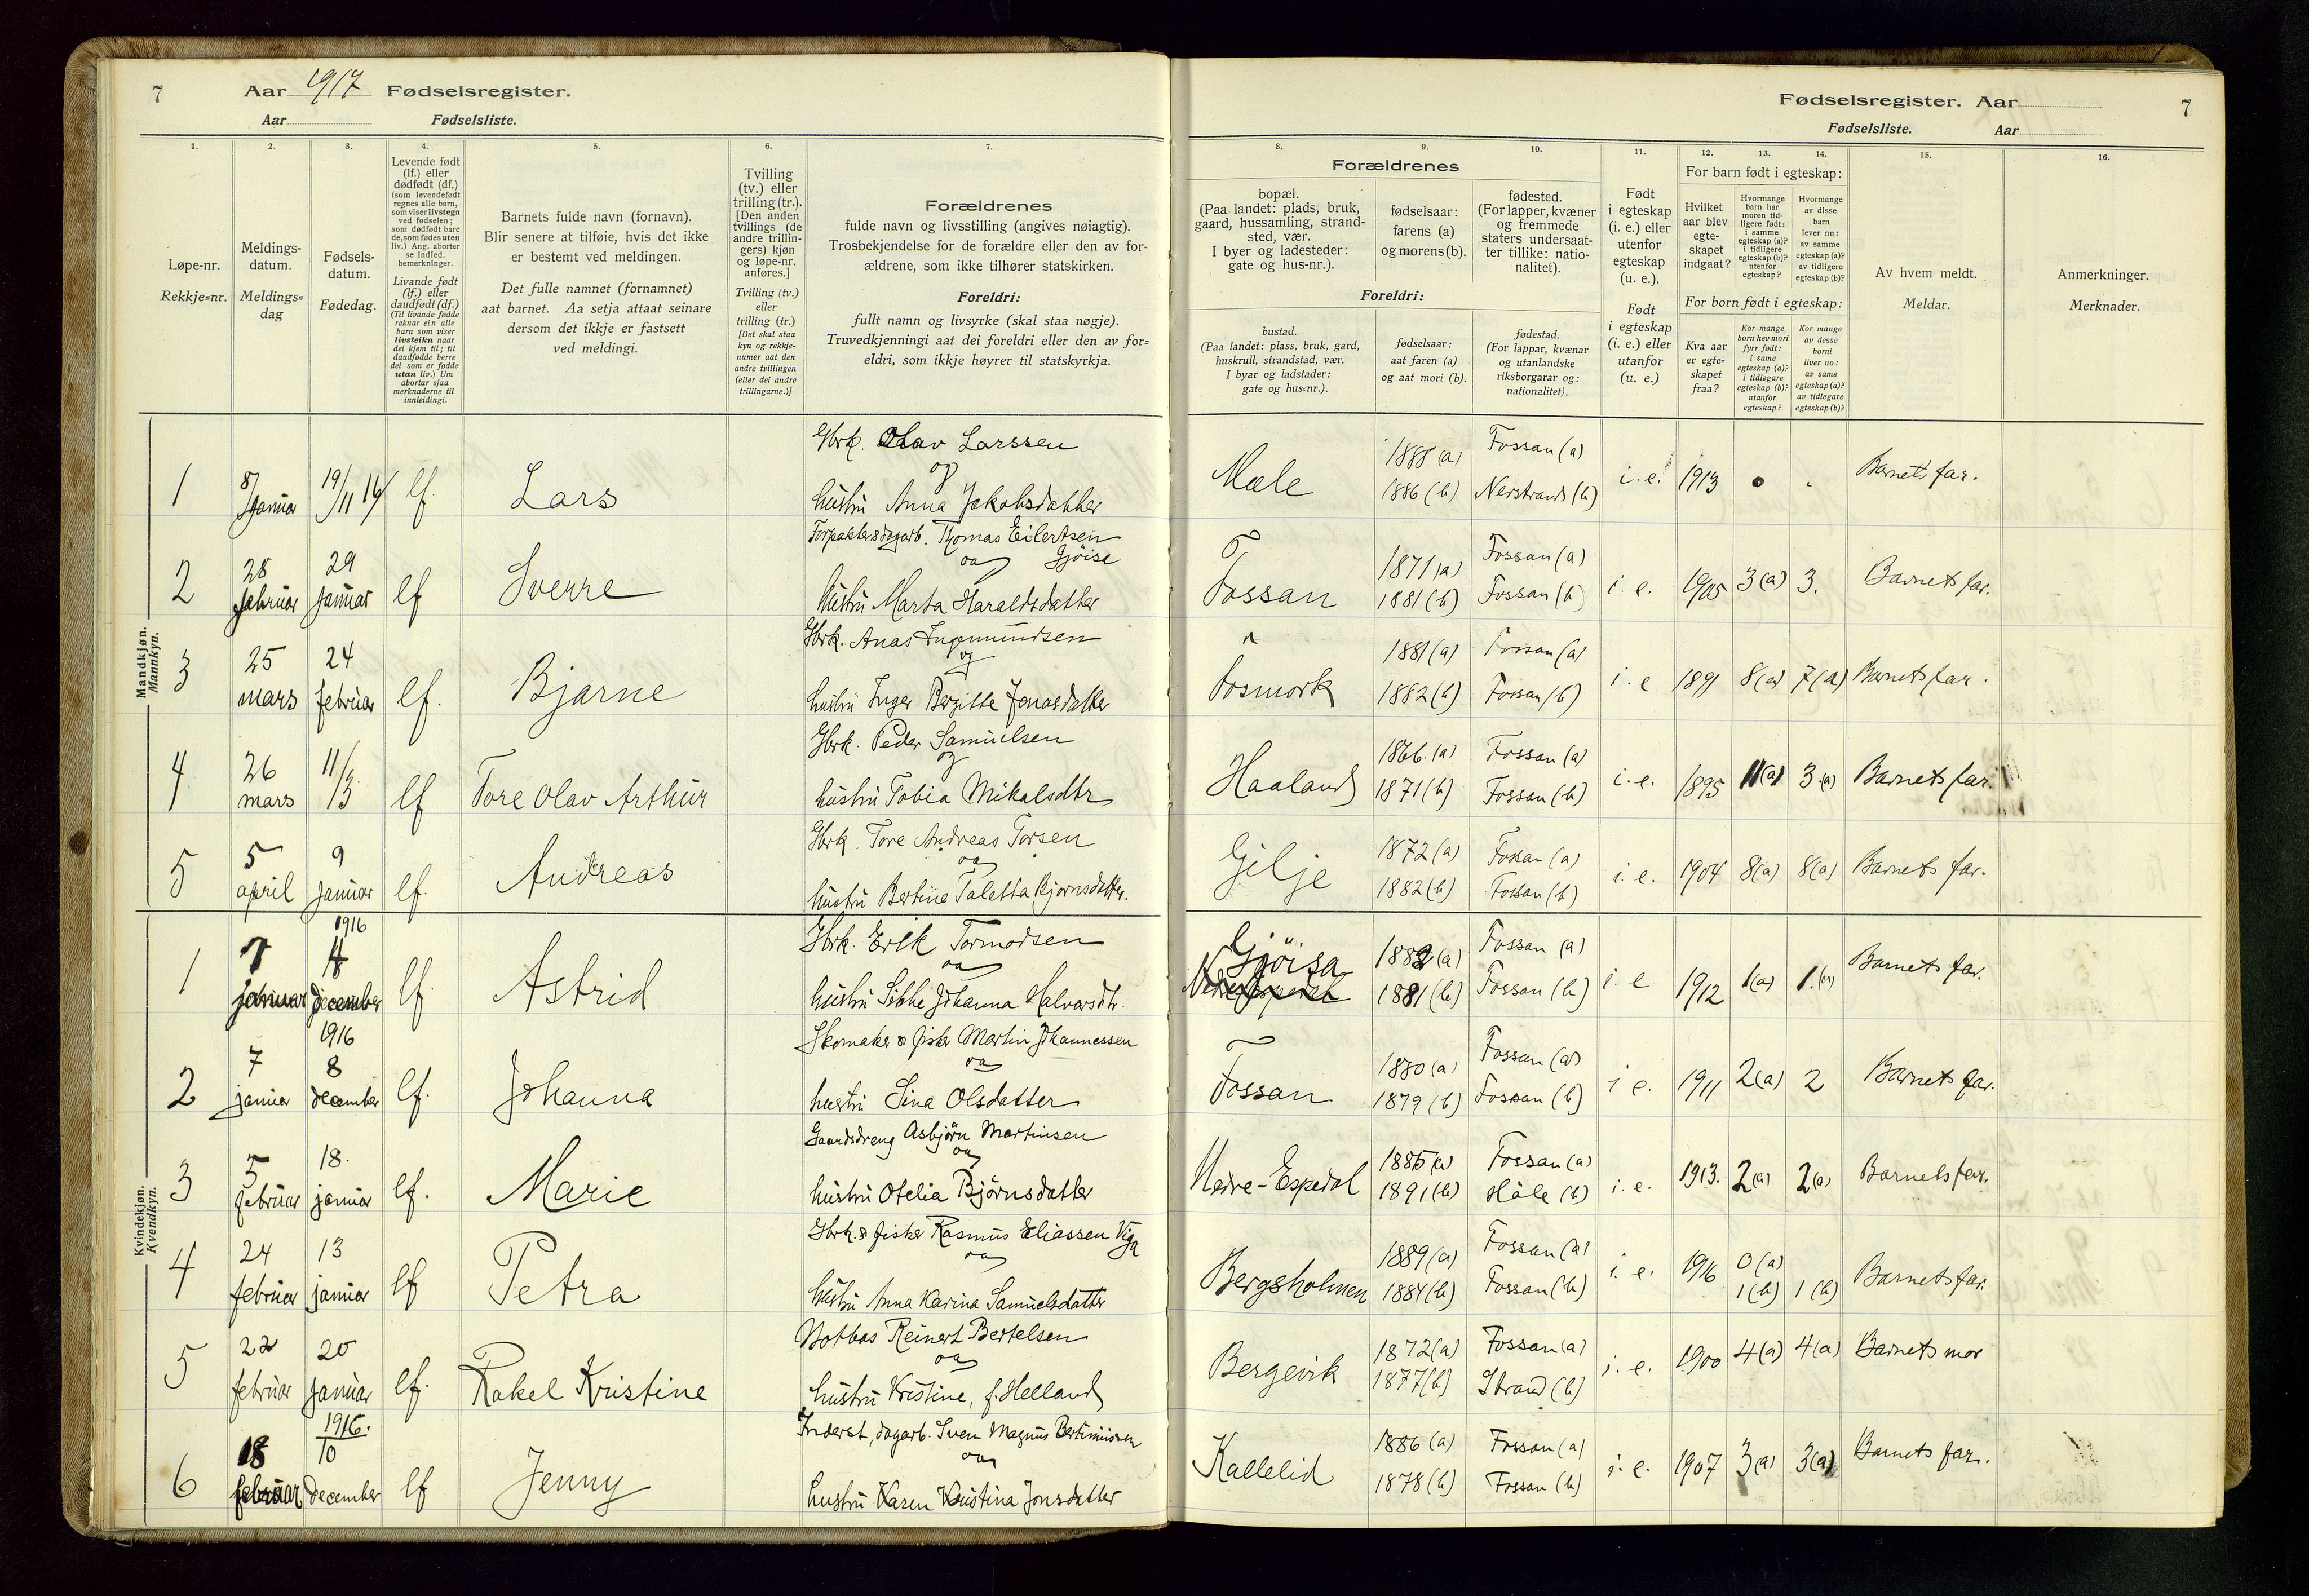 7 Aar 1917 Fødselsregister.
Aar Fødselsliste.
1. 2. 3. 4. 5. 6. 7.
Løpe-nr.
Rekkje=nr.
Meldings-
datum.
Meldings=
dag
Fødsels-
datum.
Fødedag.
Levende født
(lf.) eller
dødfødt (df.)
(som levendefødt
regnes alle barn,
som viser livstegn
ved fødselen;
som dødfødt bare
de, som fødes uten
liv.) Ang. aborter
se indled.
bemerkninger.
Livande født
(lf.) eller
daudfødt (df.)
(Til livande fødde
reknar ein alle
barn som viser
livsteikn naar
dei kjem til; til
daudfødde berre
dei som er fødde
utan liv.) Um
abortar sjaa
merknaderne til
innleidingi.
Barnets fulde navn (fornavn).
Blir senere at tilføie, hvis det ikke
er bestemt ved meldingen.
Det fulle namnet (fornamnet)
aat barnet. Aa setja attaat seinare
dersom det ikkje er fastsett
ved meldingi.
Tvilling
(tv.) eller
trilling (tr.).
[Den anden
tvillings (de
andre trillin-
gers) kjøn
og løpe-nr.
anføres.]
Tvilling (tv.)
eller
trilling (tr.)
[Det skal staa
kyn og rekkje-
numer aat den
andre tvillingen
(eller dei andre
trillingarne.)]
Forældrenes
fulde navn og livsstilling (angives nøiagtig).
Trosbekjendelse for de forældre eller den av for-
ældrene, som ikke tilhører statskirken.
Foreldri:
fullt namn og livsyrke (skal staa nøgje).
Truvedkjenningi aat dei foreldri eller den av for=
eldri, som ikkje høyrer til statskyrkja.
Mandkjøn.
Mannkyn.
1 8/ Januar 19/11 16 lf. Lars
Gbrk. Olav Larssen
og
hustru Anna Jakobsdatter
2 28 februar 29 januar lf Sverre
Forpakter & dagarb. Thomas Eilertsen
og Gjöise
hustru Marta Haraldsdatter
3 25 mars 24 februar lf. Bjarne
Gbrk. Anas Ingemundsen
og
hustru Inger Bergitte Jonasdatter
4 26 mars 11/3 lf Tore Olav Arthur
Gbrk. Peder Samuelsen
og
hustru Tobia Mikalsdtr
5 5 april 9 januar lf. Andreas
Gbrk. Tore Andreas Torsen
og
hustru Bertine Taletta Bjørnsdatter.
Kvindekjøn.
Kvendkyn.
1 7 januar 1916 4 december lf. Astrid
Gbrk. Erik Tormodsen
og
hustru Sibbe Johanna Halvorsdtr.
2 7 januar 1916 8 december lf. Johanna
Skomaker & fisker Martin Johannessen
og
hustru Sina Olsdatter
3 5 februar 18. januar lf. Marie
Gaardsdreng Asbjörn Martinsen
og
hustru Otelia Björnsdatter
4 24 februar 13 januar lf Petra
Gbrk. & fisker Rasmus Eliassen Viga
og
hustru Anna Karina Samuelsdatter
5 22 februar 20 januar lf. Rakel Kristine
Notbas Reinert Bertelsen
og
hustru Kristine, f. Helland
6 18 februar 1916. 10 december lf Jenny
Inderst, dagarb. Sven Magnus
og
hustru Karen Kristina Jonsdatter
Fødselsregister. Aar 7
Fødselsliste. Aar
8. 9. 10. 11. 12. 13. 14. 15. 16.
Forældrenes
bopæl.
(Paa landet: plads, bruk,
gaard, hussamling, strand-
sted, vær.
I byer og ladesteder:
gate og hus-nr.).
fødselsaar:
farens (a)
og morens (b).
fødested.
(For lapper, kvæner
og fremmede
staters undersaat-
ter tillike: natio-
nalitet).
Foreldri:
bustad.
(Paa landet: plass, bruk, gard,
huskrull, strandstad, vær.
I byar og ladstader:
gate og hus=nr.).
fødselsaar:
aat faren (a)
og aat mori (b).
fødestad.
(For lappar, kvænar
og utanlandske
riksborgarar og:
nationalitet).
Født
i egteskap
(i. e.) eller
utenfor
egteskap
(u. e.).
Født
i egteskap
(i. e.) eller
utanfor
(u. e.)
For barn født i egteskap:
Hvilket
aar blev
egte-
skapet
indgaat?
Hvormange
barn har
moren tid-
ligere født:
i samme
egteskap (a)?
i tidligere
egteskap (b)?
utenfor
egteskap?
Hvormange
av disse
barn
lever nu:
av samme
egteskap (a)?
av tidligere
egteskap (b)?
For born født i egteskap:
Kva aar
er egte=
skapet
fraa?
Kor mange
born hev mori
fyrr født:
i same
egteskap (a)?
i tidlegare
egteskap (b)?
utanfor
egteskap?
Kor mange
av desse
borni
liver no:
av same
egteskap (a)?
av tidlegare
egteskap (b)?
Av hvem meldt.
Meldar.
Anmerkninger.
Merknader.
Mæle 1888 (a) 1886 (b) Fossan (a) Nerstrand (b) i. e. 1913 0 . Barnets far.
Fossan 1871 (a) 1881 (b) Fossan (a) Fossan (b) i. e. 1905 3 (a) 3. Barnets far.
Fosmork 1881 (a) 1882 (b) Fossan (a) Fossan (b) i. e 1891 8 (a) 7 (a) Barnets far.
Haaland 1866. (a) 1871 (b) Fossan (a) Fossan (b) i. e. 1895 11 (a) 3 (a) Barnets far.
Gilje 1872 (a) 1882 (b) Fossan (a) Fossan (b) i. e. 1904 8 (a) 8 (a) Barnets far.
Gjöisa Nedre Espedal 1882 (a) 1881 (b) Fossan (a) Fossan (b) i. e 1912 1 (a) 1. (a) Barnets far.
Fossan 1880 (a) 1879 (b) Fossan (a) Fossan (b) i e. 1911 2 (a) 2 Barnets far.
Nedre-Espedal 1885 (a) 1891 (b) Fossan (a) Håle (b) i. e. 1913. 2 (a) 2 (a) Barnets far.
Bergsholmen 1889 (a) 1884 (b) Fossan (a) Fossan (b) i. e. 1916 0 (a) 1 (b) 1 (b) Barnets far.
Bergevik 1872 (a) 1877 (b) Fossan (a) Strand (b) i. e. 1900 4 (a) 4 (a) Barnets mor
Kallelid 1886 (a) 1878 (b) Fossan (a) Fossan (b) i. e. 1907 3 (a) 3 (a) Barnets far.